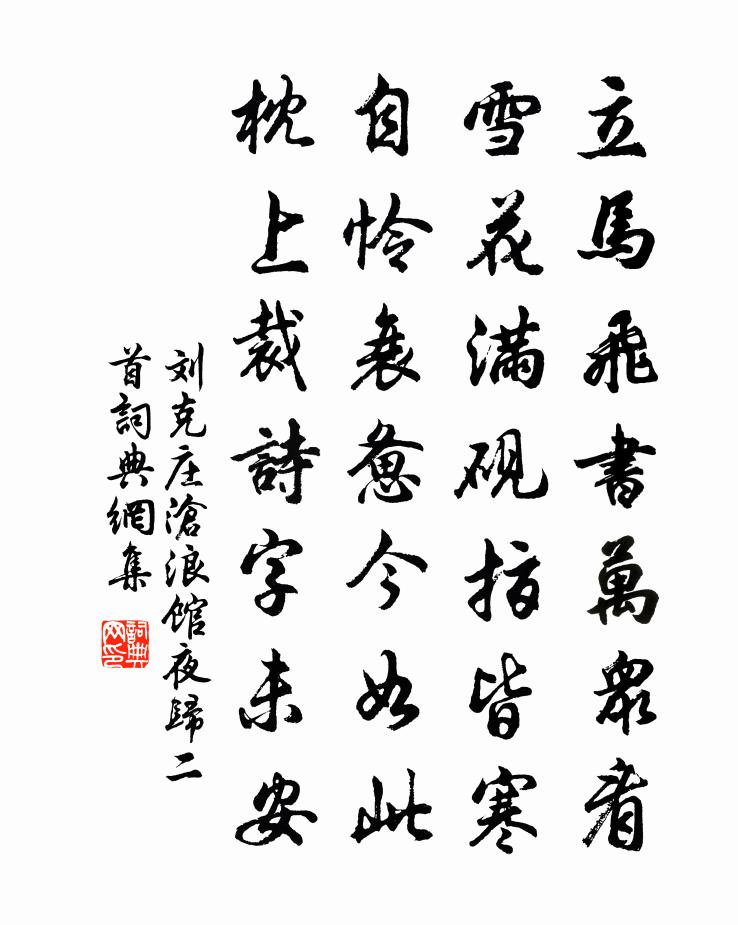 立馬飛書萬眾看
雪花滿硯指皆寒
自憐衰憊今如此
枕上裁詩字未安
刘克庄滄浪馆夜歸二
首詞典網集
詞典
网印